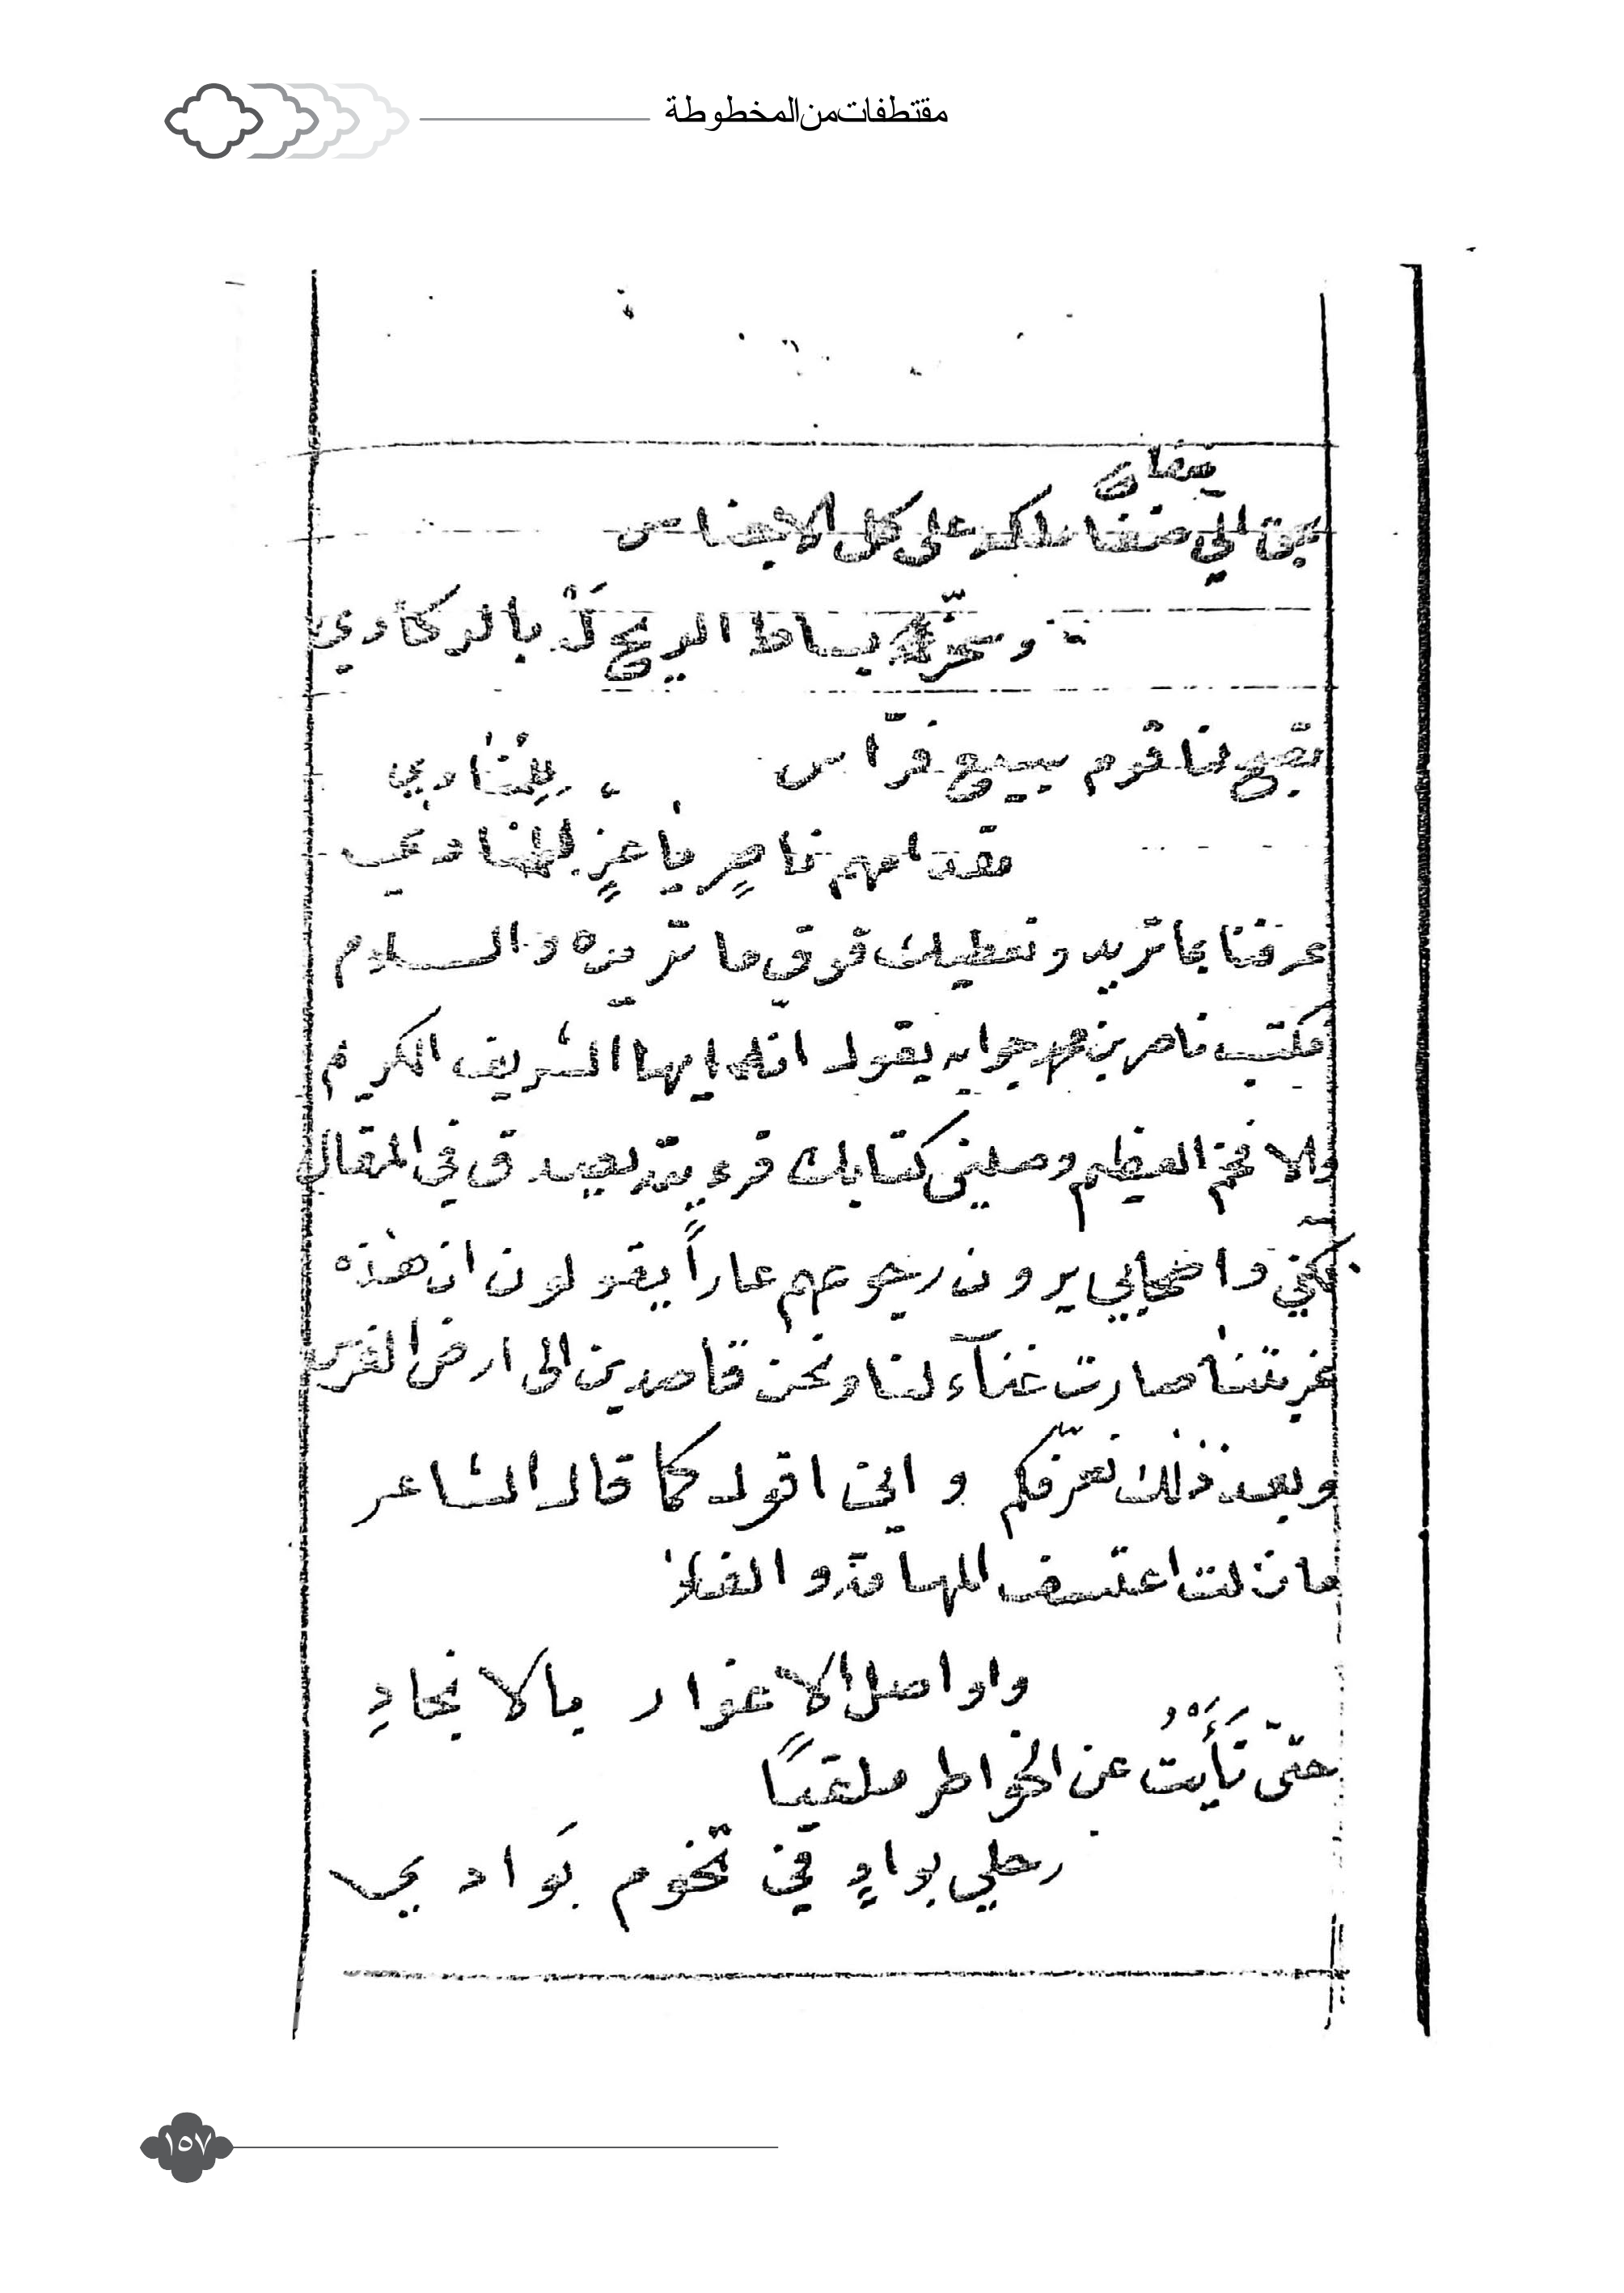 مقتطفات من المخطوطة
بحق الي ملكه على كل الاجناس
وسخرّ بساط الريح لَهْ بالركادي
قوم سبيع فرّاس
للمنادي
مقدامهم ناصرٍ ياعزٍ
عرفنا بما تريد ونعطيك فوق ما تريده والسلام
فكتب ناصر بن جوابه يقول ايها الشريف الكريم
والافخم العظيم وصلني كتابك في المقال
واصحابي يرون رجوعهم عاراً يقولون ان هذه
غربتنا صارت غنآء لنا ونحن قاصدين الى ارض الغرب
وبعد ذلك نعرّفكم واني اقول كما قال الشاعر
مازلت اعتسف المهامة والفلا
واواصل الاغوار بالانجادِ
حتّى نَأَيْتُ عن الخواطر ملقياً
رحلي بوادٍ في تخوم بَوادي
١٥٧